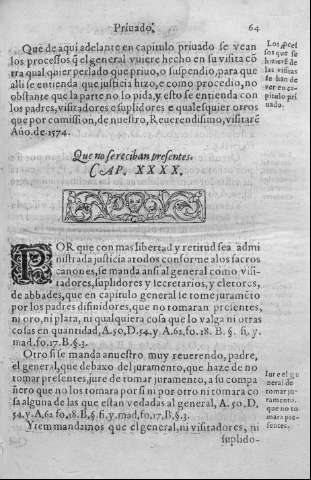 Priuado.
64
Que de aqui adelante en capitulo priuado se vean
los processos q̃ el general vuiere hecho en su visita cõ
tra qual quier perlado que priuo, o suspendio, para que
alli se entienda que justicia hizo, e como procedio, no
obstante que la parte no lo pida, y esto se entienda con
los padres, visitadores e suplidores e quales quier otros
que por comission, de nuestro, Reuerendissimo, visitarẽ
Año. de 1574.
Los ꝓcessos
sos que se
huuierẽ de
las visitas
se han de
ver en ca-
pitulo pri
uado.
Que no se reciban presentes.
CAP. XXXX.
POR que con mas libertad y retitud sea admi
nistrada justicia a todos conforme a los sacros
canones, se manda ansi al general como visi-
tadores, suplidores y secretarios, y eletores,
de abbades, que en capitulo general se tome juramẽto
por los padres difinidores, que no tomaran presentes,
ni oro, ni plata, ni qualquiera cosa que lo valga ni otras
cosas en quantidad, A. 50, D. 54, y A. 62, fo. 18. B. §. fi. y.
mad. fo. 17. B, §. 3.
Otro si se manda a nuestro muy reuerendo, padre,
el general, que debaxo del juramento, que haze de no
tomar presentes, jure de tomar juramento, a su compa
ñero que no los tomara por si ni por otro ni tomara co
sa alguna de las que estan vedadas al general, A. 50, D.
54, y A, 62 fo, 18, B, §. fi, y. mad, fo, 17, B, §. 3.
Iure el ge
neral de
tomar ju-
ramento.
que no to
mara pre-
sentes.
Yten mandamos que el general, ni visitadores, ni
suplido-